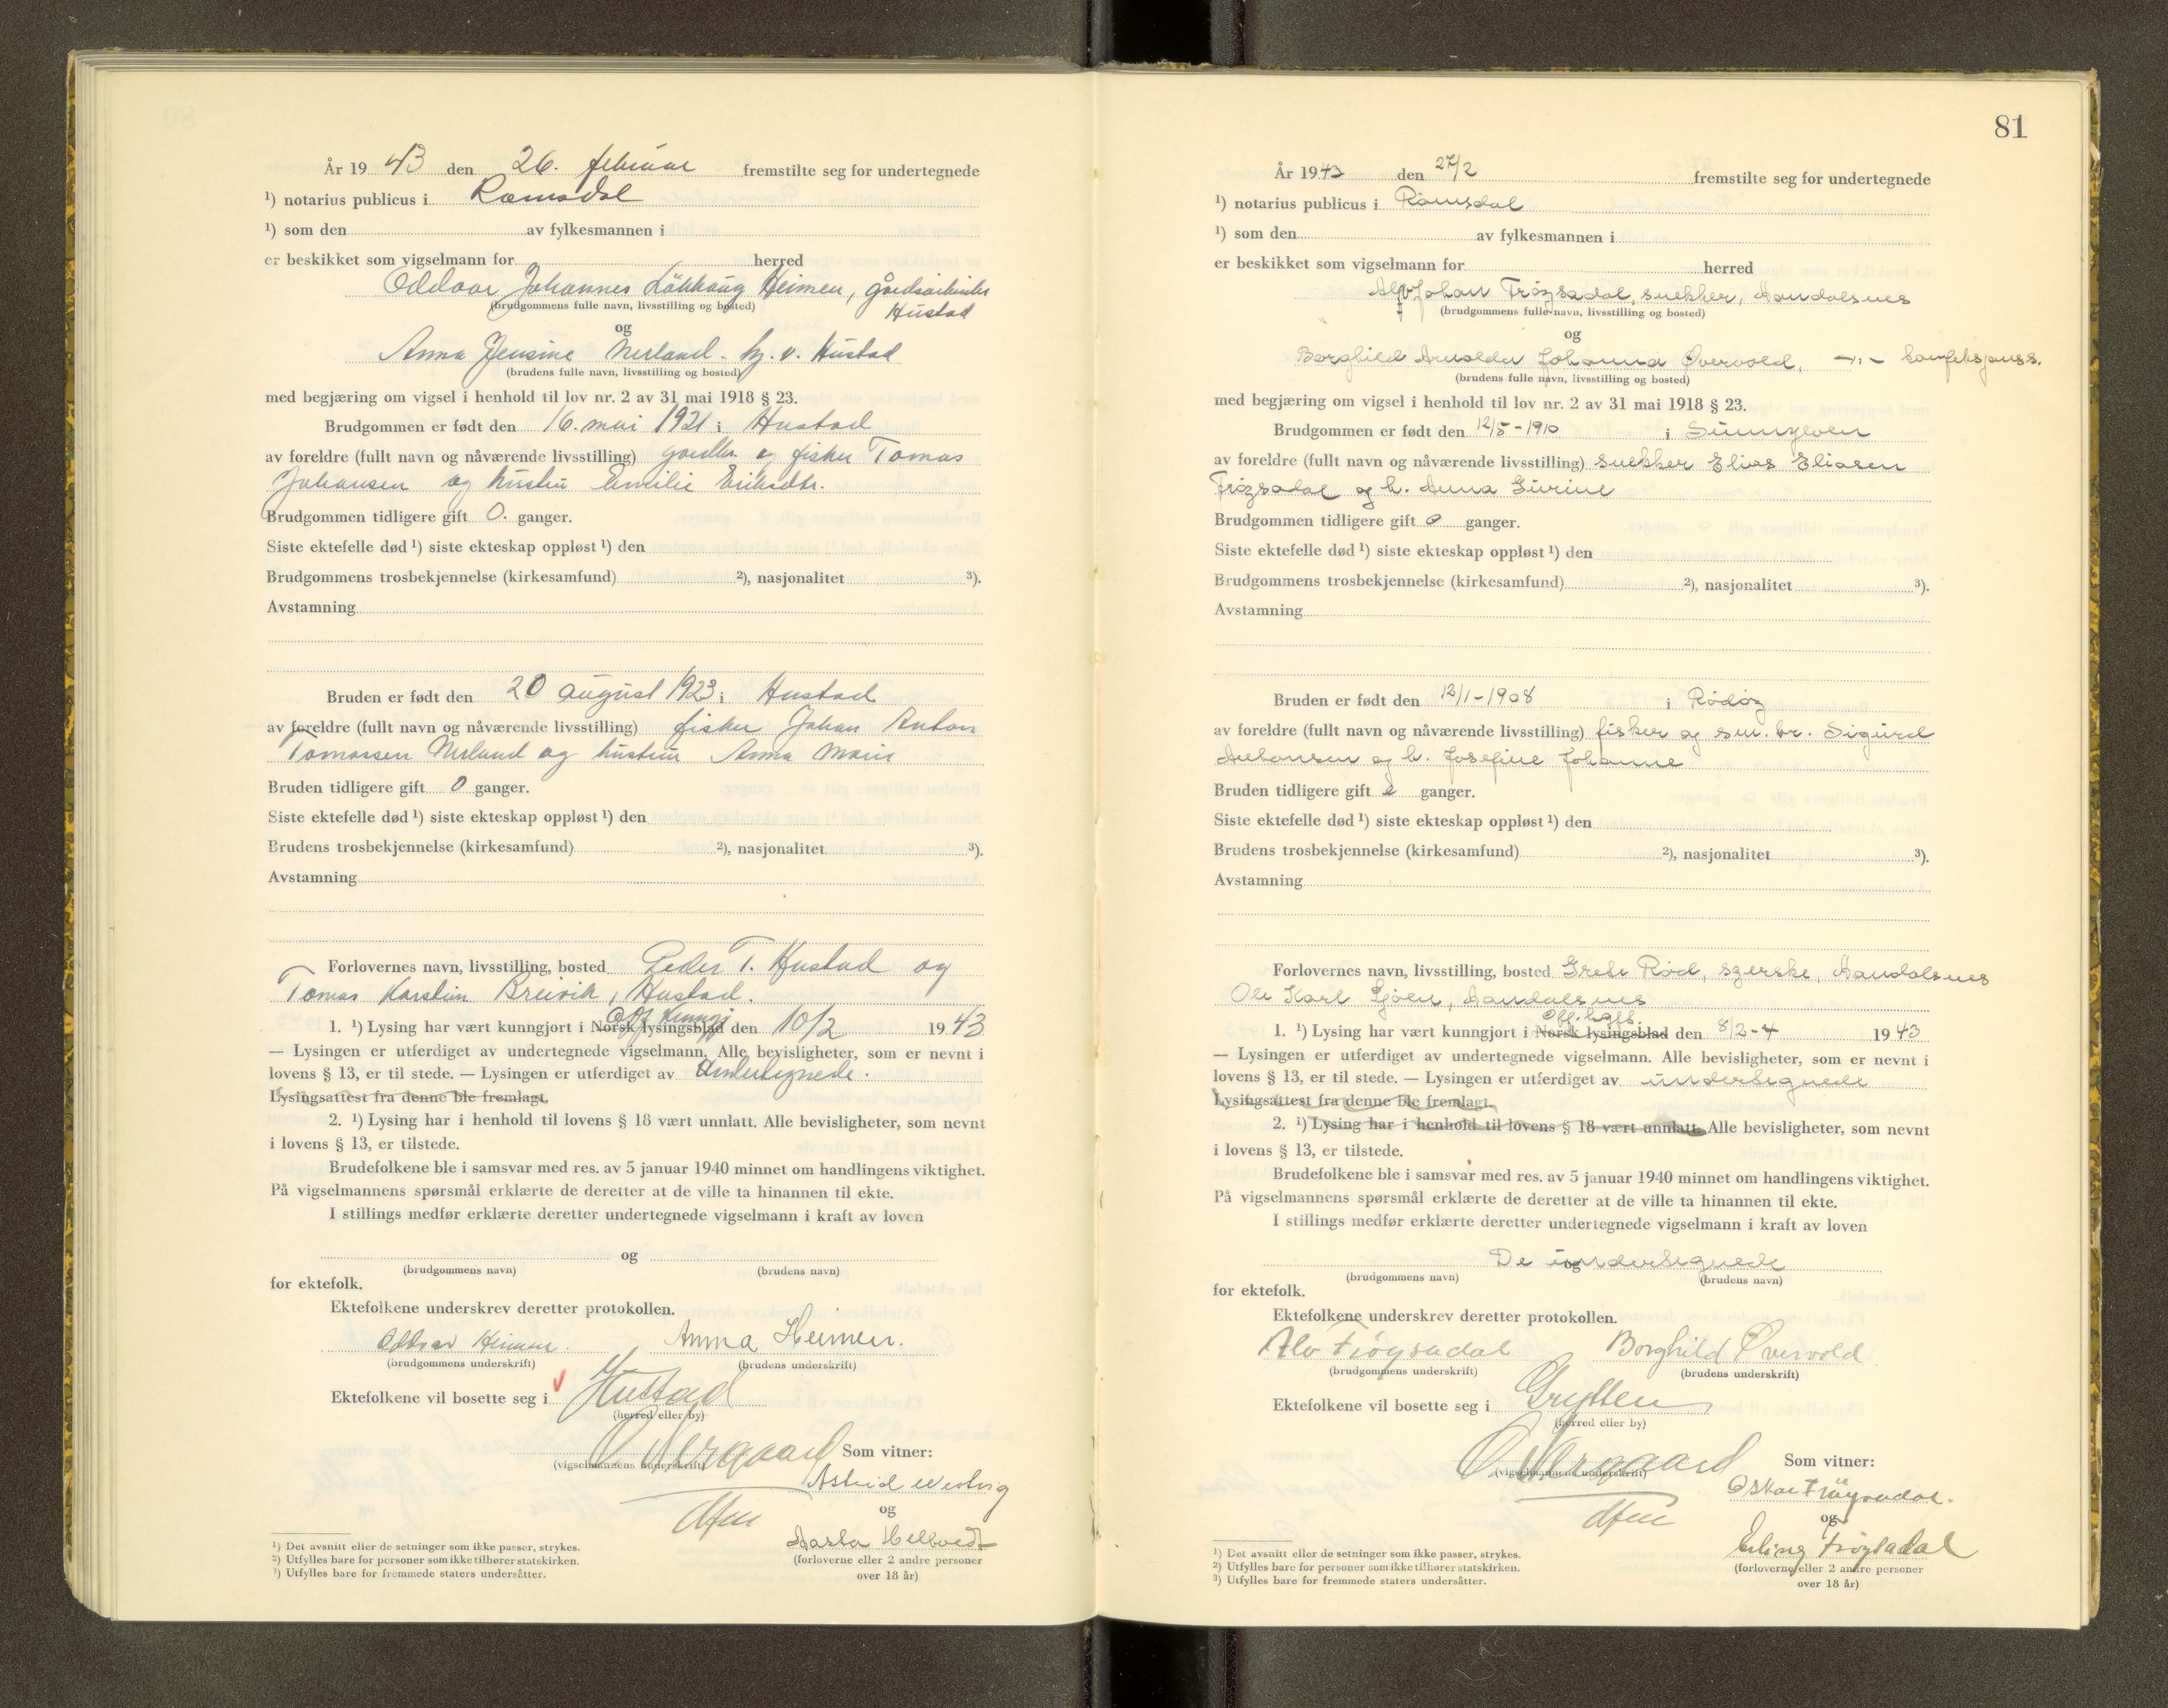 År 19 43 den 26. februar fremstilte seg for undertegnede
¹) notarius publicus i Romsdal
¹) som den av fylkesmannen i
er beskikket som vigselmann for herred
Oddvar Johannes Heimen, gårdsarbeider
Hustad
(brudgommens fulle navn, livsstilling og bosted)
og
Anna Jensine Nerland. hj. v. Hustad
(brudens fulle navn, livsstilling og bosted)
med begjæring om vigsel i henhold til lov nr. 2 av 31 mai 1918 § 23.
Brudgommen er født den 16. mai 1921 i Hustad
av foreldre (fullt navn og nåværende livsstilling) gårdbr. og fisker Tomas
Johansen og hustru Emilie Eriksdtr.
Brudgommen tidligere gift 0. ganger.
Siste ektefelle død ¹) siste ekteskap oppløst ¹) den
Brudgommens trosbekjennelse (kirkesamfund) ²), nasjonalitet ³).
Avstamning
Bruden er født den 20 august 1923 i Hustad
av foreldre (fullt navn og nåværende livsstilling) fisker Johan Anton
Tomassen Nerland og hustru Anna Marie
Bruden tidligere gift 0 ganger.
Siste ektefelle død ¹) siste ekteskap oppløst ¹) den
Brudens trosbekjennelse (kirkesamfund) ²), nasjonalitet ³).
Avstamning
Forlovernes navn, livsstilling, bosted Peder T. Hustad og
Tomas Karstein Breivik, Hustad.
Off. Kunngj
1. ¹) Lysing har vært kunngjort i Norsk lysingsblad den 10/2 19 43
— Lysingen er utferdiget av undertegnede vigselmann. Alle bevisligheter, som er nevnt i
lovens § 13, er til stede. — Lysingen er utferdiget av Undertegnede.
Lysingsattest fra denne ble fremlagt.
2. ¹) Lysing har i henhold til lovens § 18 vært unnlatt. Alle bevisligheter, som nevnt
i lovens § 13, er tilstede.
Brudefolkene ble i samsvar med res. av 5 januar 1940 minnet om handlingens viktighet.
På vigselmannens spørsmål erklærte de deretter at de ville ta hinannen til ekte.
I stillings medfør erklærte deretter undertegnede vigselmann i kraft av loven
og
(brudgommens navn) (brudens navn)
for ektefolk.
Ektefolkene underskrev deretter protokollen.
Oddvar Heimen. Anna Heimen.
(brudgommens underskrift) (brudens underskrift)
Ektefolkene vil bosette seg i Hustad
(herred eller by)
Som vitner:
(vigselmannens underskrift)
Astrid
og
Aasta
(forloverne eller 2 andre personer
over 18 år)
¹) Det avsnitt eller de setninger som ikke passer, strykes.
²) Utfylles bare for personer som ikke tilhører statskirken.
³) Utfylles bare for fremmede staters undersåtter.
81
År 19 43 den 27/2 fremstilte seg for undertegnede
¹) notarius publicus i Romsdal
¹) som den av fylkesmannen i
er beskikket som vigselmann for herred
Alv Johan Frøysadal, snekker, Aandalsnes
(brudgommens fulle navn, livsstilling og bosted)
og
Borghild Arnolda Johanna Øvervold, —„—
(brudens fulle navn, livsstilling og bosted)
med begjæring om vigsel i henhold til lov nr. 2 av 31 mai 1918 § 23.
Brudgommen er født den 12/5-1910 i Sunnylven
av foreldre (fullt navn og nåværende livsstilling) snekker Elias Eliasen
Frøysadal og h. Anna Gurine
Brudgommen tidligere gift 0 ganger.
Siste ektefelle død ¹) siste ekteskap oppløst ¹) den
Brudgommens trosbekjennelse (kirkesamfund) ²), nasjonalitet ³).
Avstamning
Bruden er født den 12/1-1908 i Rødøy
av foreldre (fullt navn og nåværende livsstilling) fisker og sm. br. Sigurd
Antonsen og h. Josefine Johanne
Bruden tidligere gift ganger.
Siste ektefelle død ¹) siste ekteskap oppløst ¹) den
Brudens trosbekjennelse (kirkesamfund) ²), nasjonalitet ³).
Avstamning
Forlovernes navn, livsstilling, bosted Grete Rød, syerske, Aandalsnes
Ole Karl Sjøen, Aandalsnes
1. ¹) Lysing har vært kunngjort i Norsk lysingsblad den 8/2-4 19 43
— Lysingen er utferdiget av undertegnede vigselmann. Alle bevisligheter, som er nevnt i
lovens § 13, er til stede. — Lysingen er utferdiget av undertegnede
Lysingsattest fra denne ble fremlagt.
2. ¹) Lysing har i henhold til lovens § 18 vært unnlatt. Alle bevisligheter, som nevnt
i lovens § 13, er tilstede.
Brudefolkene ble i samsvar med res. av 5 januar 1940 minnet om handlingens viktighet.
På vigselmannens spørsmål erklærte de deretter at de ville ta hinannen til ekte.
I stillings medfør erklærte deretter undertegnede vigselmann i kraft av loven
De undertegnede
og
(brudgommens navn) (brudens navn)
for ektefolk.
Ektefolkene underskrev deretter protokollen.
Alv Frøysadal Borghild Øvervold
(brudgommens underskrift) (brudens underskrift)
Ektefolkene vil bosette seg i Grytten
(herred eller by)
Som vitner:
(vigselmannens underskrift)
Oskar Frøysadal.
og
Erling Frøysadal
(forloverne eller 2 andre personer
over 18 år)
¹) Det avsnitt eller de setninger som ikke passer, strykes.
²) Utfylles bare for personer som ikke tilhører statskirken.
³) Utfylles bare for fremmede staters undersåtter.